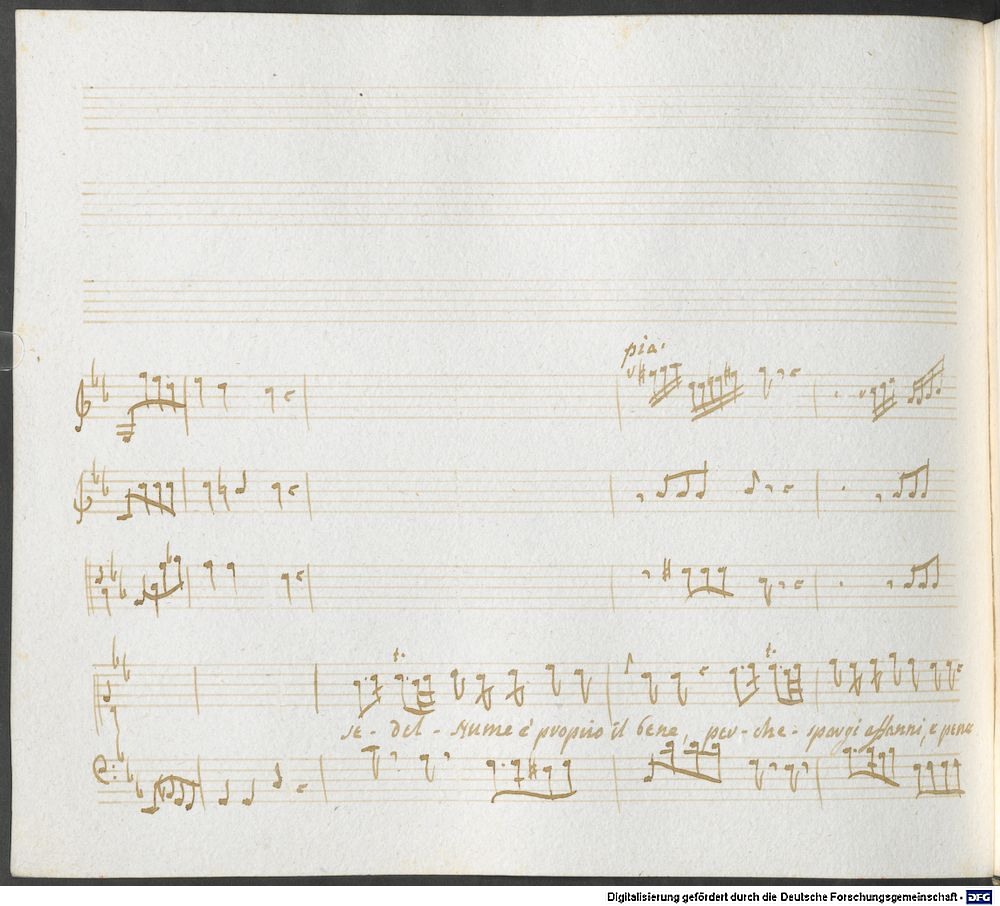 pia.
se- del- Nume è proprio il bene, per-che- spargi affanni, e pene
Digitalisierung gefördert durch die Deutsche Forschungsgemeinschaft - DFG